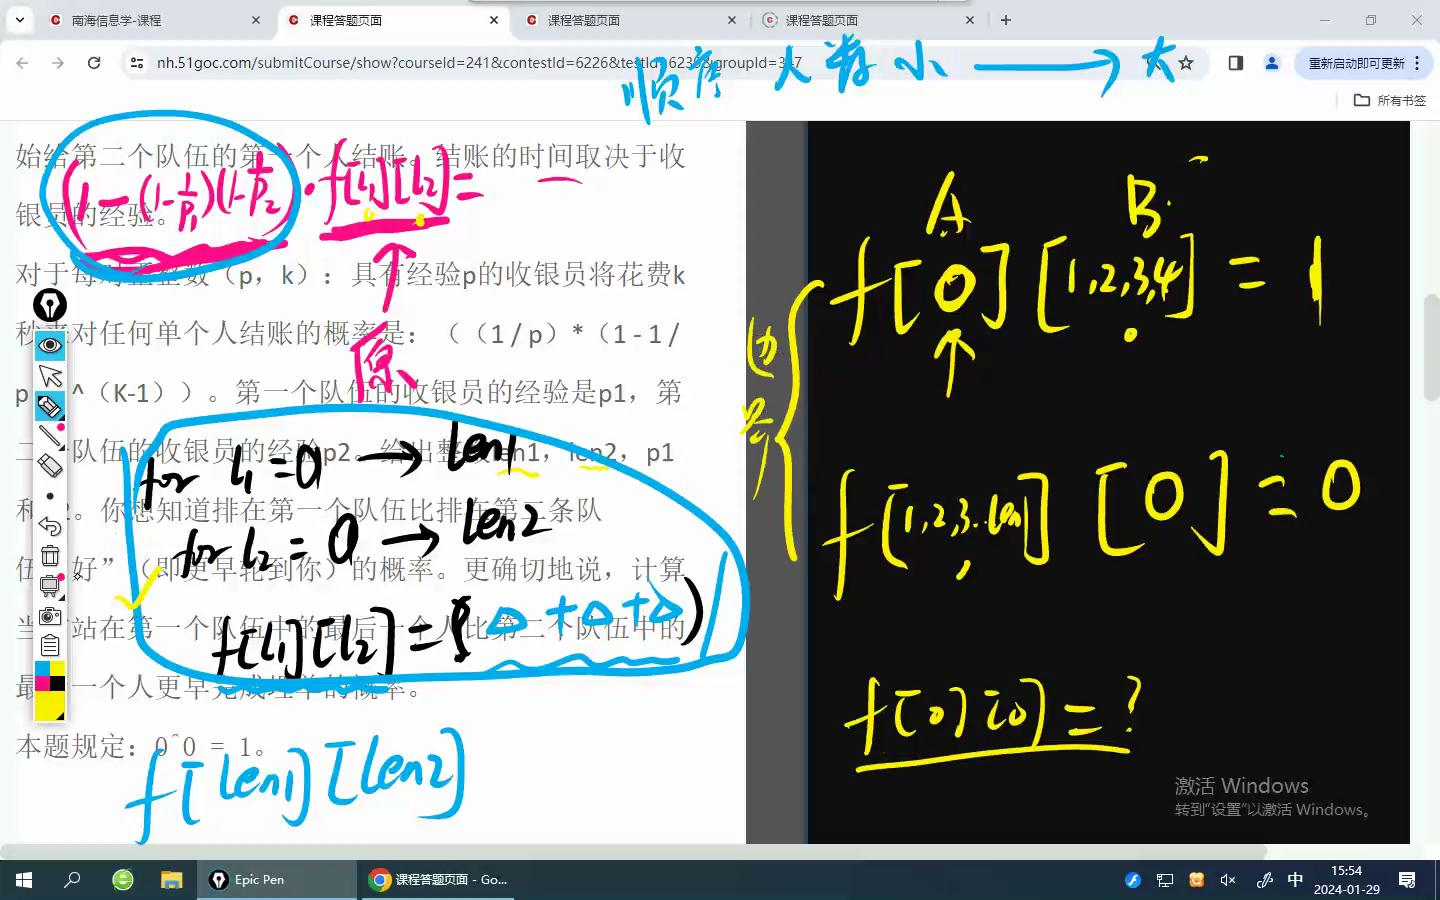 南海信息学-课程
课程答题页面
课程答题页面
课程答题页面
nh.51goc.com/submitCourse/show?courseId=241&contestId=6226&testId=6236&groupId=347
重新启动即可更新
所有书签
顺序 人数 小 → 大
始给第二个队伍的第一个人结账。结账的时间取决于收
银员的经验。
(1-(1-1/p1)(1-1/p2))·f[l1][l2]=
原
对于每对正整数（p，k）：具有经验p的收银员将花费k
秒来对任何单个人结账的概率是：（（1/p）*（1-1/
p）^（K-1））。第一个队伍的收银员的经验是p1，第
二个队伍的收银员的经验p2。给出整数len1，len2，p1
和p2。你想知道排在第一个队伍比排在第二条队
伍“好”（即更早轮到你）的概率。更确切地说，计算
当你站在第一个队伍中的最后一个人比第二个队伍中的
最后一个人更早完成结单的概率。
本题规定：0^0 = 1。
for l1=0 → len1
for l2=0 → len2
f[l1][l2]=(△+△+△)
f[len1][len2]
边界
A B
f[0][1,2,3,4]=1
f[1,2,3..len][0]=0
f[0][0]=?
激活 Windows
转到“设置”以激活 Windows。
Epic Pen
课程答题页面 - Go...
中
15:54
2024-01-29